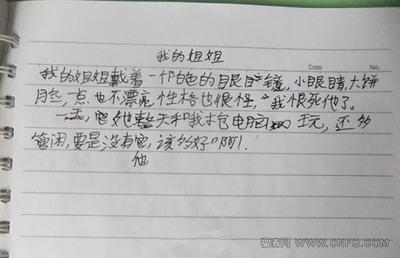 我的姐姐
Date No.
我的姐姐戴着一付白色的眼镜,小眼睛,大饼
脸,一点也不漂亮,性格也很怪,"我恨死他了。
一天,它她整天和我抢电脑玩,还多
管闲,要是没有它,该多好啊!
他
WWW.CNFQ.COM